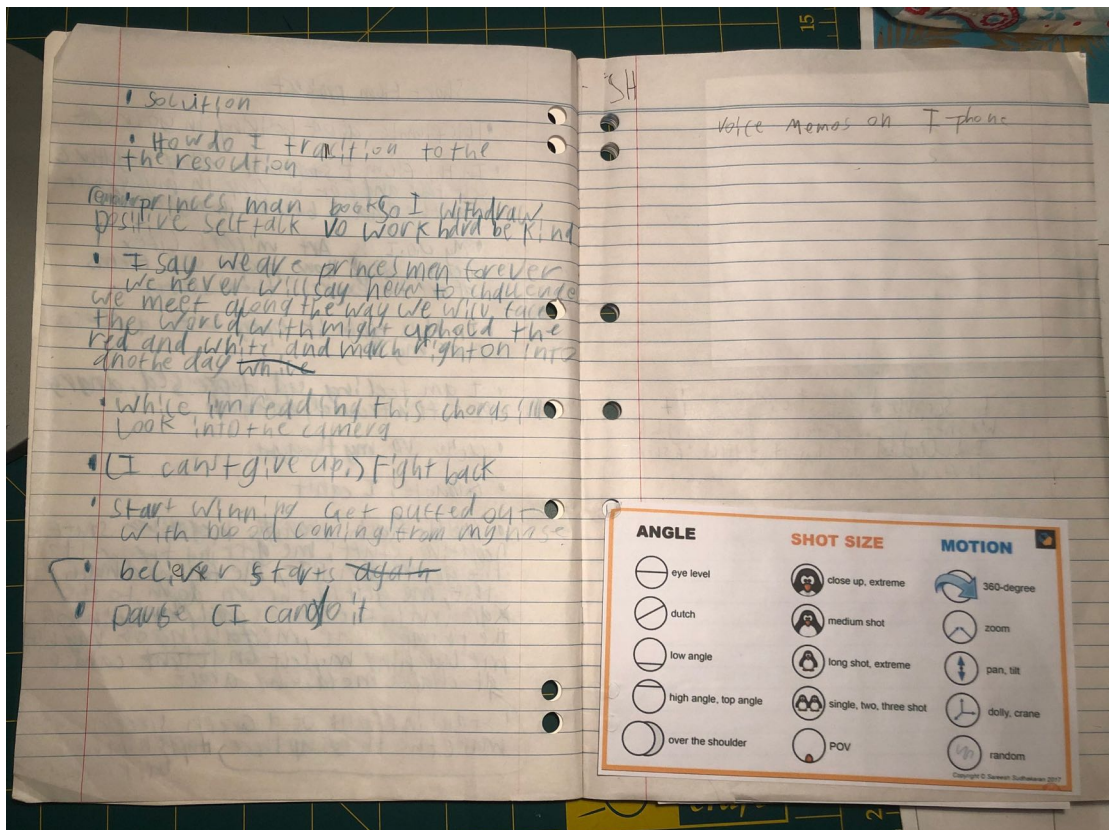 • Solution
• How do I trasition to the
the resolution
princes man books so I withdraw
positive self talk VO work hard be kind
• I say we are princes men forever
we never will say never to challenge
we meet along the way we will face
the world with might uphold the
red and white and march right on into
anothe day white
• While im reading this chords I'll
Look into the camera
• (I can't give up.) Fight back
• Start winning Get putted out
with blood coming from my nose
• believer starts again
• pause (I can do it
- SH
voice Memos on I-phone
ANGLE
eye level
dutch
low angle
high angle, top angle
over the shoulder
SHOT SIZE
close up, extreme
medium shot
long shot, extreme
single, two, three shot
POV
MOTION
360-degree
zoom
pan, tilt
dolly, crane
random
Copyright © Sareesh Sudhakaran 2017
15
2